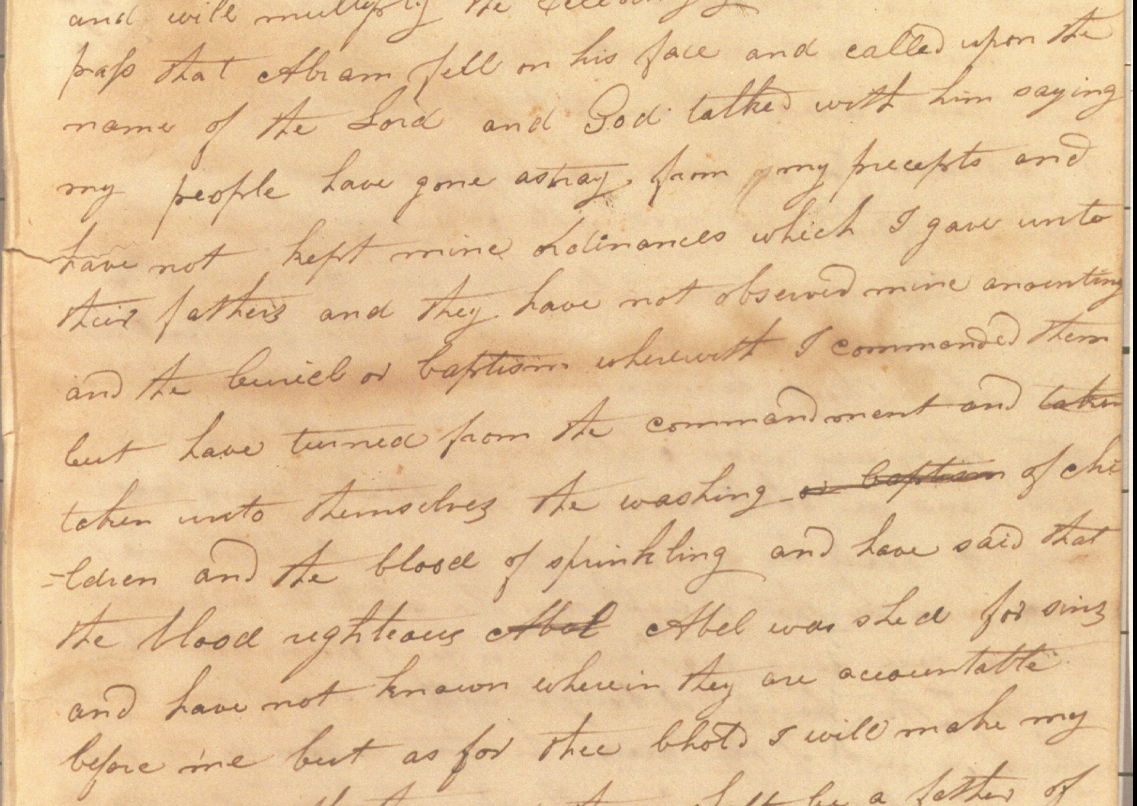 and will multiply the
pass that Abram fell on his face and called upon the
name of the Lord and God talked with him saying
my people have gone astray from my precepts and
have not kept mine ordinances which I gave unto
their fathers and they have not observed mine anointing
and the buriel or baptism wherewith I commanded them
but have turned from the commandment and taken
taken unto themselves the washing or baptism of chi
=ldren and the blood of sprinkling and have said that
the blood righteous Abel Abel was shed for sins
and have not known wherein they are accountable
before me but as for thee bhold I will make my
be a father of